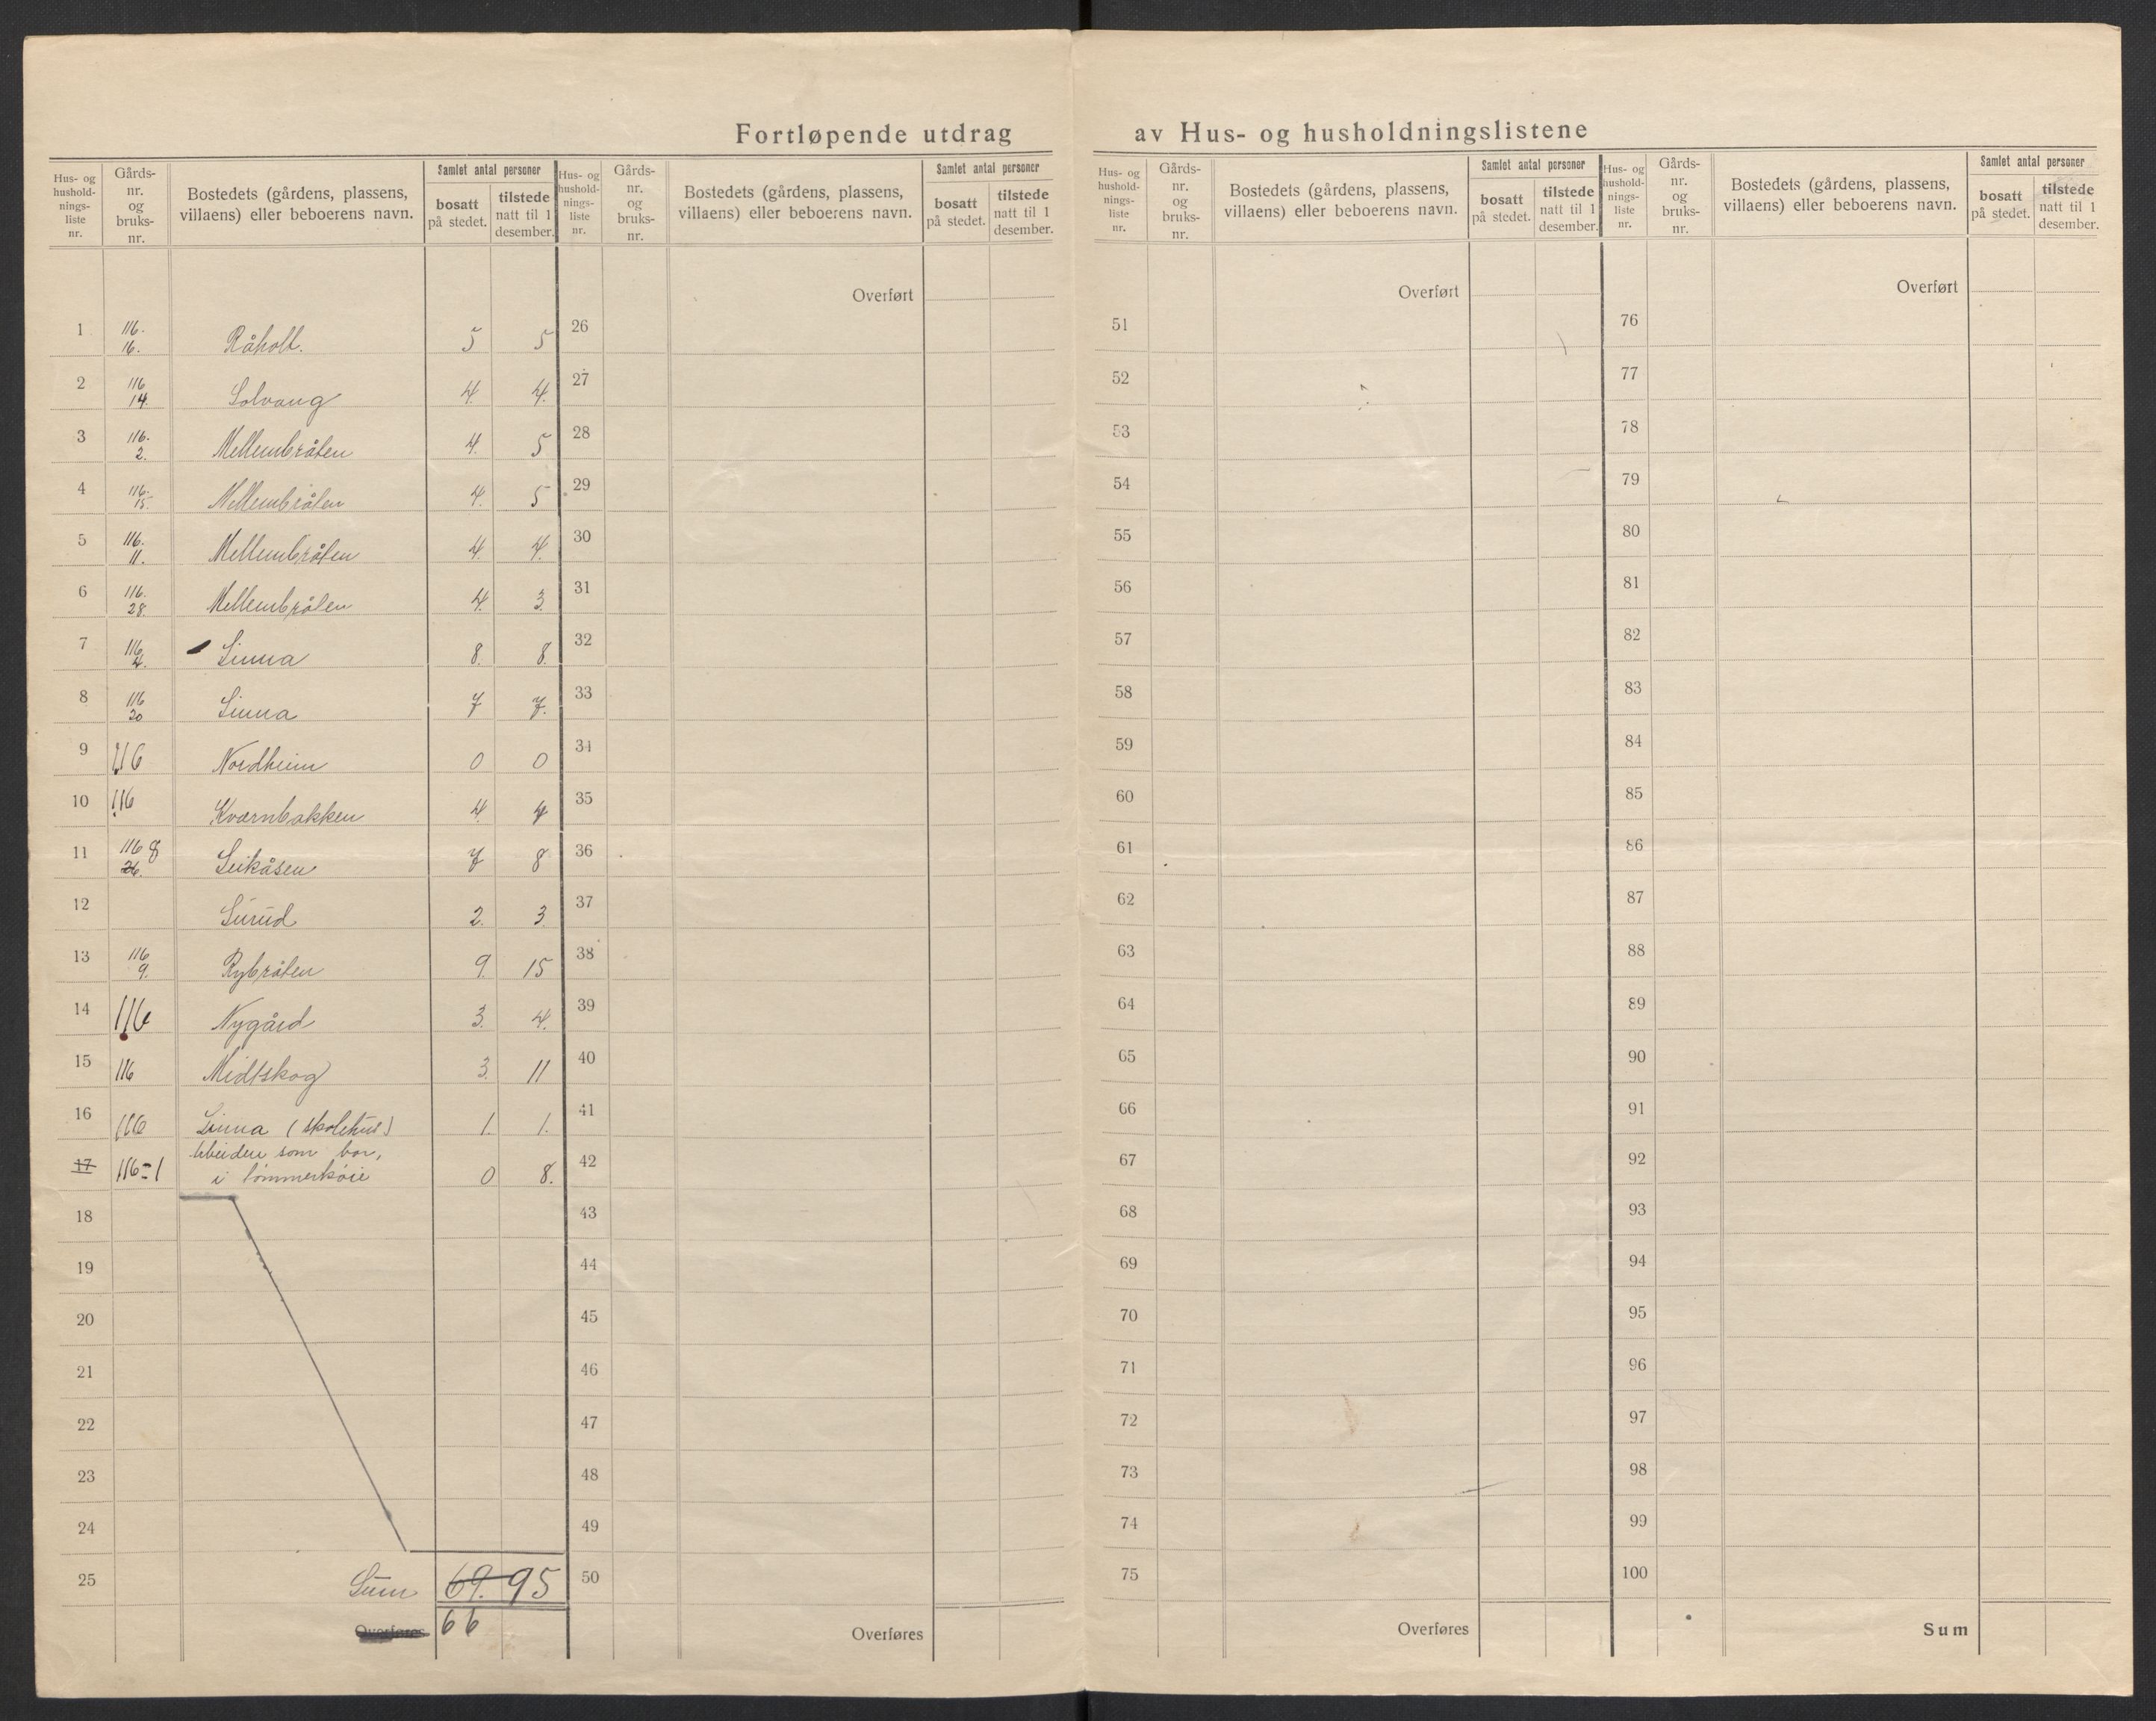 Fortløpende utdrag av Hus- og husholdningslistene
Hus- og hushold-nings-liste nr. Gårds-nr. og bruks-nr. Bostedets (gårdens, plassens, villaens) eller beboerens navn. Samlet antal personer bosatt på stedet. tilstede natt til 1 desember.
1 116. 16. Råholt. 5 5
2 116 14. Solvang 4. 4.
3 116. 2. Mellembråten 4. 5
4 116. 15. Mellembråten 4. 5
5 116. 11. Mellembråten 4. 4.
6 116. 28. Mellembråten 4. 3.
7 116 4. Linna 8. 8.
8 116 20 Linna 7 7.
9 116 Nordheim 0 0
10 116 Kværnbakken 4. 4
11 116 8 26. Leikåsen 7 8
12 Surud 2. 3
13 116 9. Rybråten 9. 15
14 116 Nygård 3. 4.
15 116 Midtskog 3. 11
16 116 Linna (skolehus) 1. 1.
17 116=1 som bor,
i tømmerkøie 0 8.
18
19
20
21
22
23
24
25 Sum 69. 95
Overføres 66
Hus- og hushold-nings-liste nr. Gårds-nr. og bruks-nr. Bostedets (gårdens, plassens, villaens) eller beboerens navn. Samlet antal personer bosatt på stedet. tilstede natt til 1 desember.
Overført
26
27
28
29
30
31
32
33
34
35
36
37
38
39
40
41
42
43
44
45
46
47
48
49
50
Overføres
Hus- og hushold-nings-liste nr. Gårds-nr. og bruks-nr. Bostedets (gårdens, plassens, villaens) eller beboerens navn. Samlet antal personer bosatt på stedet. tilstede natt til 1 desember.
Overført
51
52
53
54
55
56
57
58
59
60
61
62
63
64
65
66
67
68
69
70
71
72
73
74
75
Overføres
Hus- og hushold-nings-liste nr. Gårds-nr. og bruks-nr. Bostedets (gårdens, plassens, villaens) eller beboerens navn. Samlet antal personer bosatt på stedet. tilstede natt til 1 desember.
Overført
76
77
78
79
80
81
82
83
84
85
86
87
88
89
90
91
92
93
94
95
96
97
98
99
100
Sum